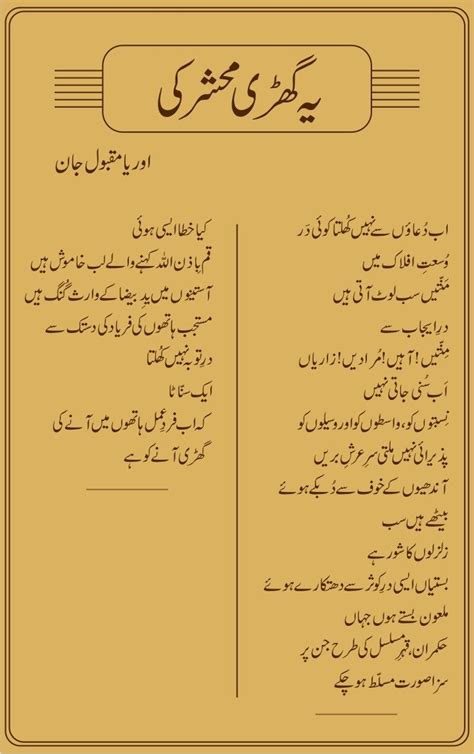 یہ گھڑی محشر کی
اوریا مقبول جان
اب دُعاؤں سے نہیں کُھلتا کوئی دَر
وُسعتِ افلاک میں
مَنّتیں سب لوٹ آتی ہیں
درِ ایجاب سے
مِنّتیں! آہیں! مُرادیں! زاریاں
اَب سُنی جاتی نہیں
نِسبتوں کو، واسطوں کو اور وسیلوں کو
پذیرائی نہیں ملتی سرِ عرشِ بریں
آندھیوں کے خوف سے دُبکے ہوئے
بیٹھے ہیں سب
زلزلوں کا شور ہے
بستیاں ایسی درِ کوثر سے دھتکارے ہوئے
ملعون بستے ہوں جہاں
حکمران، قہرِ مسلسل کی طرح جن پر
سزا صورت مسلّط ہو چکے
کیا خطا ایسی ہوئی
قم باذن اللہ کہنے والے لب خاموش ہیں
آستینوں میں یدِ بیضا کے وارث گُنگ ہیں
مستجب ہاتھوں کی فریاد کی دستک سے
درِ توبہ نہیں کُھلتا
ایک سنّاٹا
کہ اب فردِ عمل ہاتھوں میں آنے کی
گھڑی آنے کو ہے